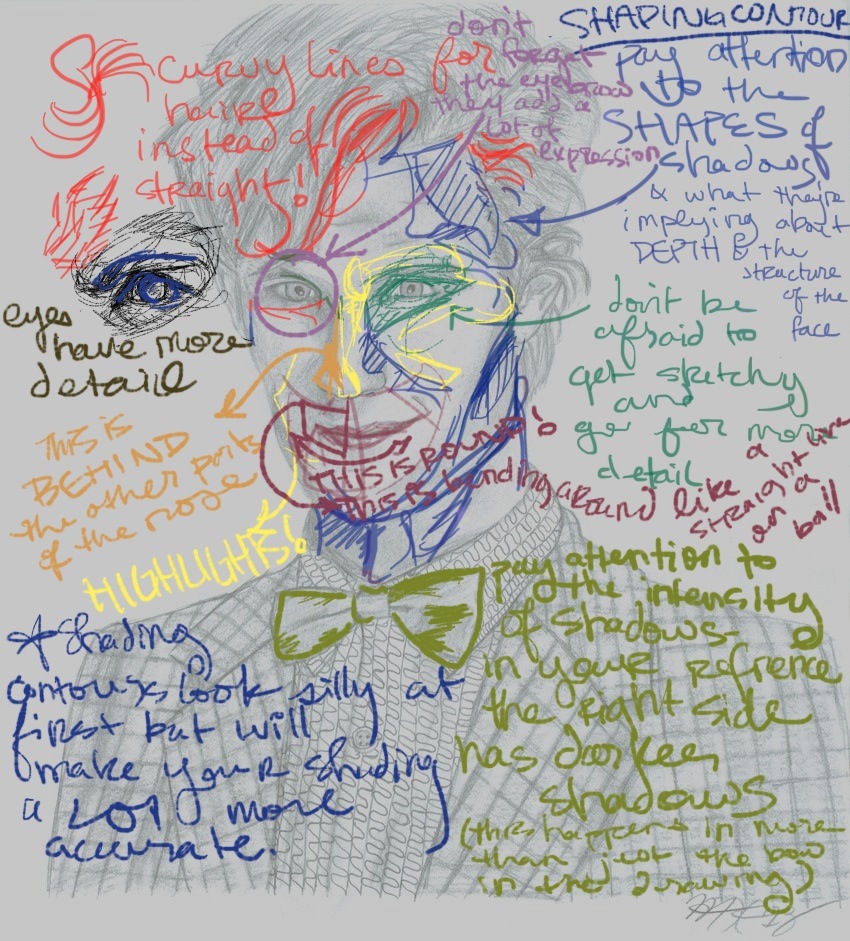 SHADING CONTOUR
pay attention
to the
SHAPES of
shadows
& what they're
implying about
DEPTH & the
structure
of the
face
don't
forget
the eyebrows
they add a
lot of
expression
curvy lines for
hair
instead of
straight!
eyes
have more
detail
don't be
afraid to
get sketchy
and
go for more
detail
THIS is
BEHIND
the other parts
of the nose
THIS IS ROUND!
*This is bending around like a
straight line
on a
ball
HIGHLIGHTS!
pay attention to
the intensity
of shadows-
in your refrence
the right side
has darker
shadows
(this happens in more
than just the bow
in the drawing)
*Shading
contours look silly at
first but will
make your shading
a LOT more
accurate.